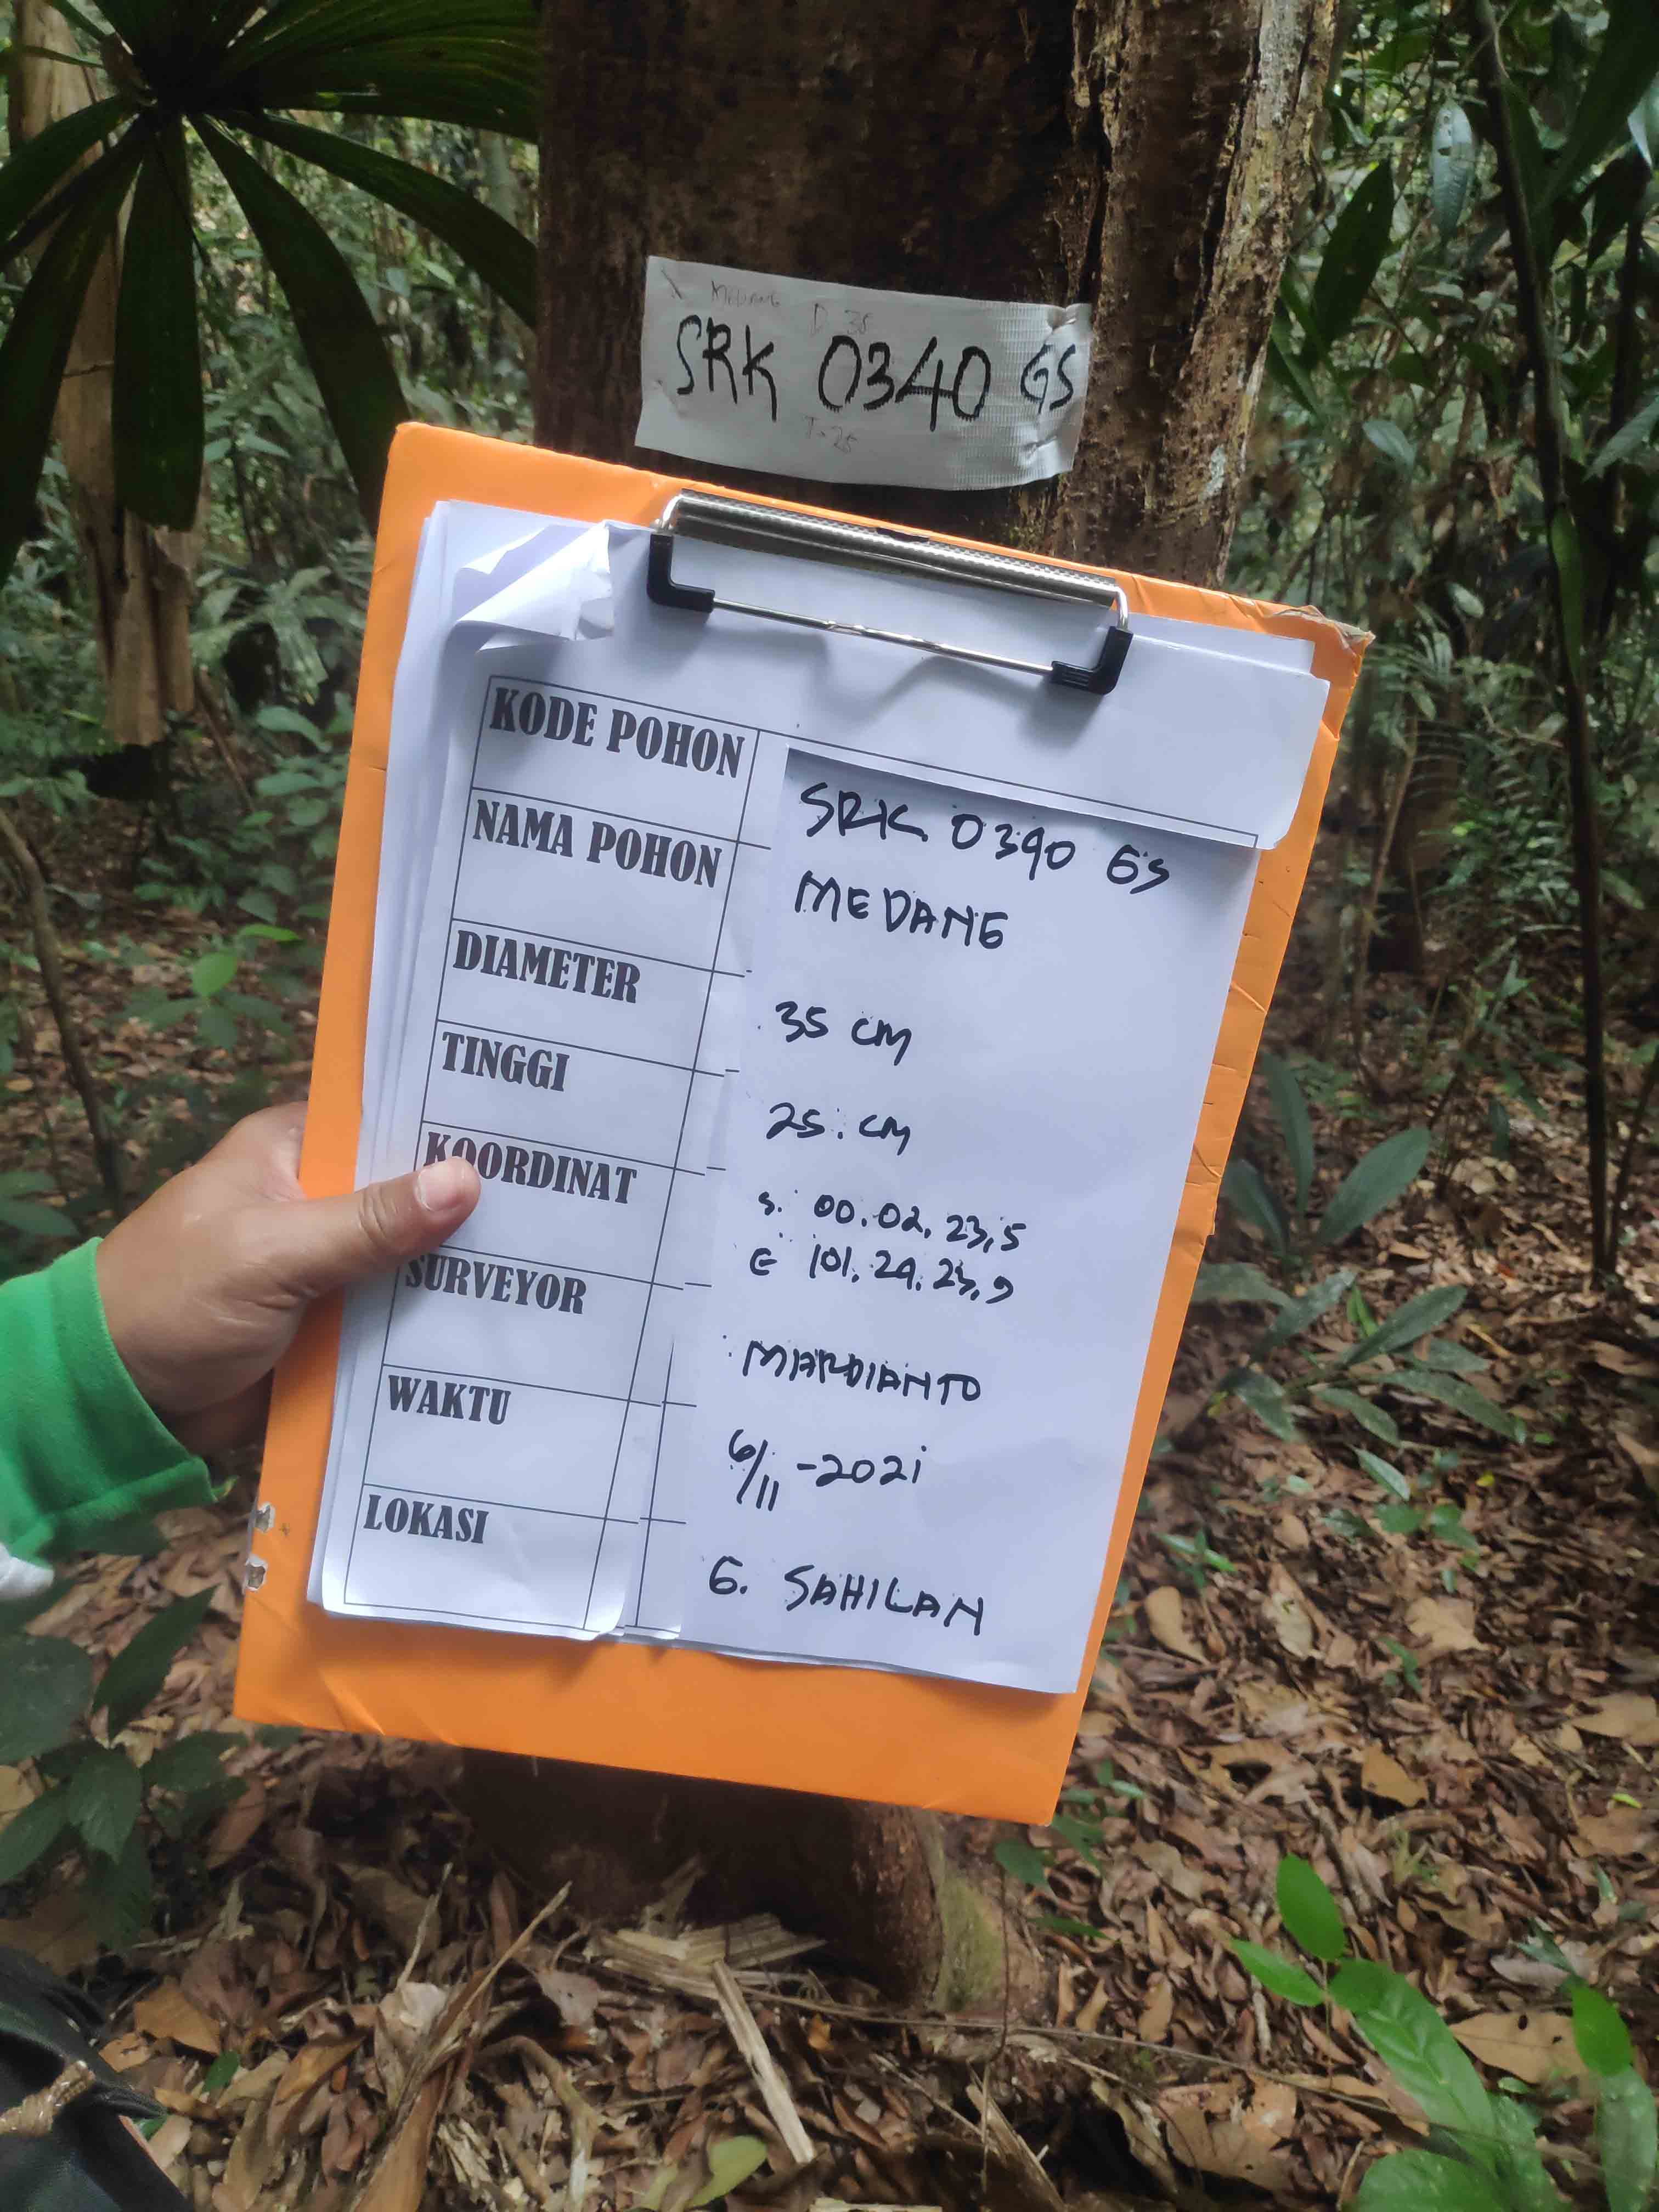 MEDANG D. 35
SRK 0340 GS
T=25
KODE POHON SRK 0340 GS
NAMA POHON MEDANG
DIAMETER 35 CM
TINGGI 25. CM
KOORDINAT S. 00.02.23,5
E 101.24.23,9
SURVEYOR MARDIANTO
WAKTU 6/11-2021
LOKASI G. SAHILAN